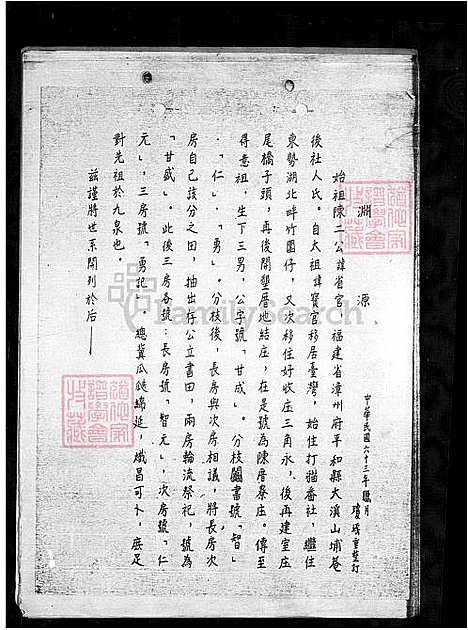 淵源
中華民國六十三年臘月
瓊珴重整訂
始祖陳二公諱省官，福建省漳州府平和縣大溪山埔菴
後社人氏。自太祖諱寶官移居臺灣，始住打猫番社，繼住
東勢湖北畔竹圍仔，又次移住好收庄三角永，後再建室庄
尾橋子頭，再後開墾厝地結庄，在是號為陳厝寮庄。傳至
得意祖，生下三男，公字號「甘成」。分枝鬮書號「智」
．「仁」．「勇」。分枝後，長房與次房相議，將長房次
房自己該分之田，抽出存公立書田，兩房輪流祭祀，號為
「甘盛」。此後三房各號：長房號「智元」，次房號「仁
元」，三房號「勇記」。總冀瓜瓞綿延，熾昌可卜，庶足
對先祖於九泉也。
茲謹將世系開列於后——
FamilySearch